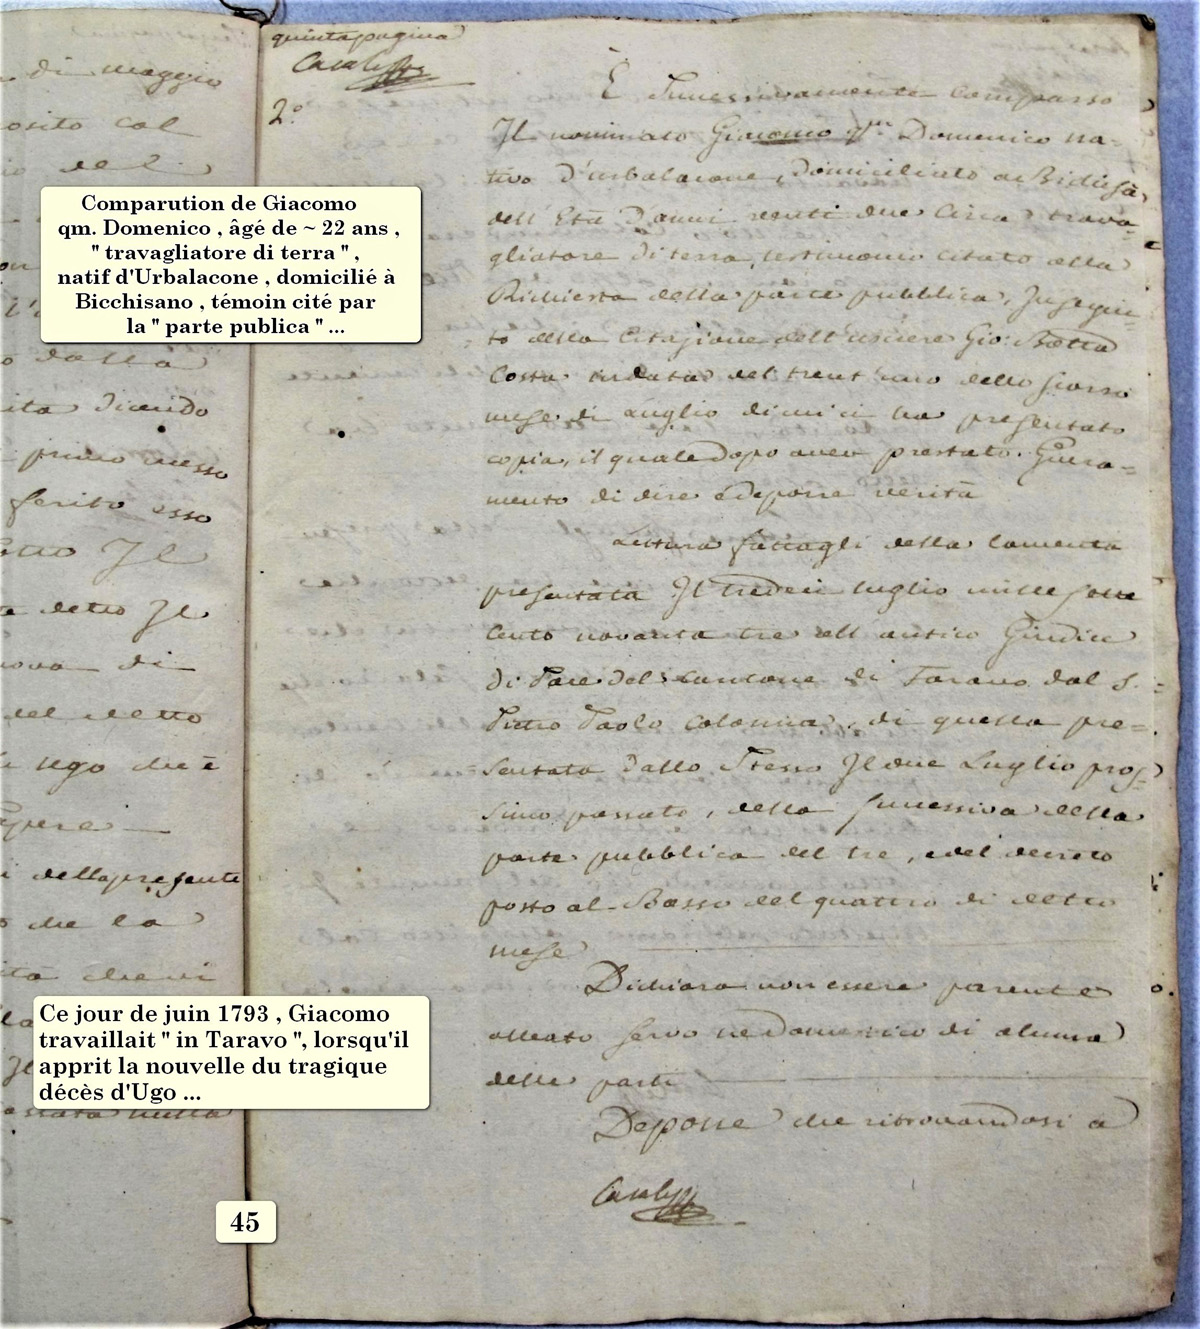 di maggio
osito col
del
dalla
ita dicendo
primo messo
ferito esso
Il
detto Il
uova di
del detto
Ugo che è
sapere
i della presente
che la
tà che vi
Il
passata nella
Comparution de Giacomo
qm. Domenico , âgé de ~ 22 ans ,
" travagliatore di terra " ,
natif d'Urbalacone , domicilié à
Bicchisano , témoin cité par
la " parte publica " ...
Ce jour de juin 1793 , Giacomo
travaillait " in Taravo ", lorsqu'il
apprit la nouvelle du tragique
décès d'Ugo ...
45
quinta pagina
Casale
2°
È Successivamente comparso
Il nominato Giacomo qm Domenico na-
tivo d'urbalacone, domiciliato a Bichisà
dell'Età D'anni venti due Circa trava-
gliatore di terra, testimonio citato alla
Richiesta della parte pubblica, Insegui-
to della Citazione dell'usciere Gio: Batta
Costa in data del trent'uno dello scorso
mese di Luglio di cui ci ha presentato
copia, il quale dopo aver prestato Giura=
mento di dire e deporre verità
Lettura fattagli della lamenta
presentata Il tredeci luglio mille sette
cento novanta tre all'antico Giudice
di Pace del cantone di Taravo dal S.=
Pietro Paolo Colonna, di quella pre=
sentata dallo Stesso Il due Luglio pros=
simo passato, della successiva della
parte pubblica del tre, e del decreto
posto al Basso del quattro di detto
mese
Dichiara non essere parente
alleato servo ne Domestico di alcuna
delle parti
Depone che ritrovandosi a
Casale